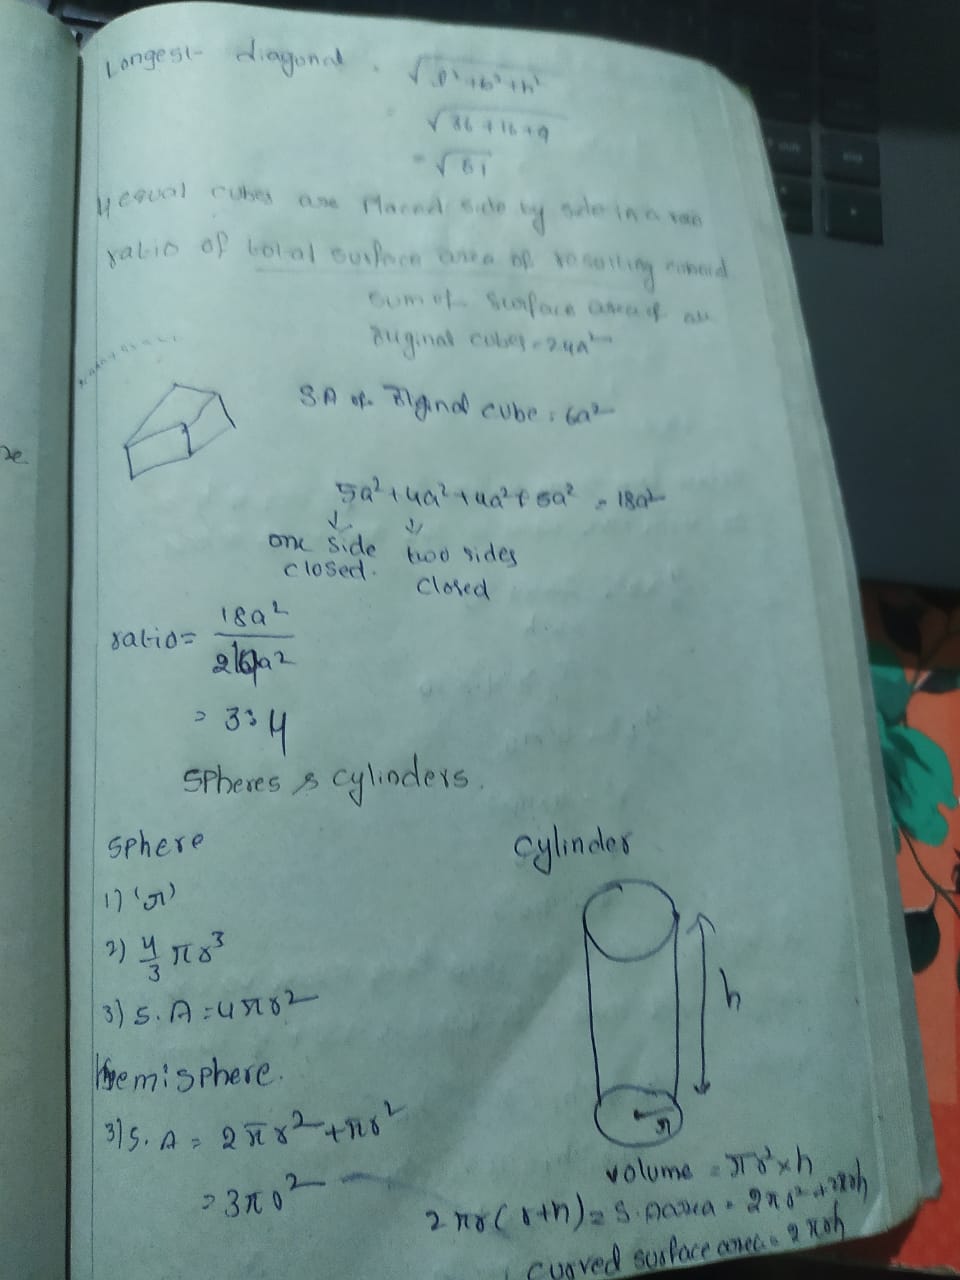 Longest diagonal. √l²+b²+h²
√36+16+9
=√61
4 equal cubes are placed side by side in a row
ratio of total surface area of resulting cuboid
sum of surface area of all
original cubes = 24a²
SA of original cube = 6a²
5a²+4a²+4a²+5a² = 18a²
↓ ↓
one side two sides
closed. closed
ratio= 18a²
a²
= 3:4
Spheres & cylinders.
sphere
cylinder
1) 'r'
2) 4/3 πr³
3) S.A = 4πr²
h
Hemisphere.
3) S. A = 2πr²+πr²
r
= 3πr²
volume = πr²×h
2πr(r+h) = S. Aarea = 2πr²+2πrh
curved surface area = 2πrh